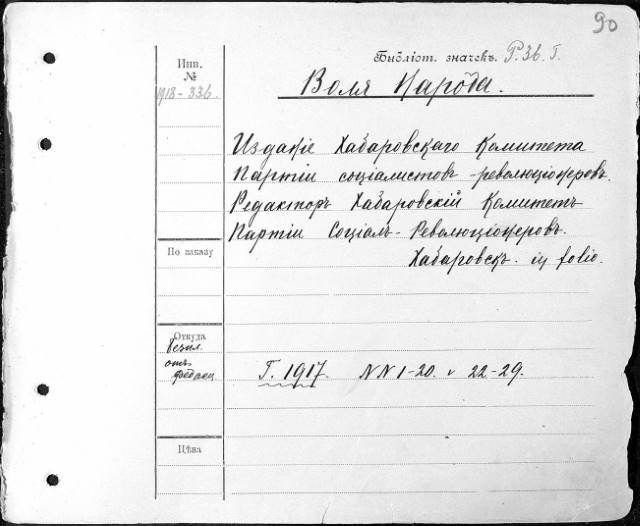 90
Инв.
№
1918-336.
Библіот. значекъ. Р. Зв. Г.
Воля Народа.
Изданіе Хабаровскаго Комитета
Партіи соціалистовъ-революціонеровъ.
Редакторъ Хабаровскій Комитетъ
Партіи Соціалъ-Революціонеровъ.
Хабаровскъ. in folio.
По заказу
Откуда
отъ
Г. 1917. NN 1-20. и 22-29.
Цѣна